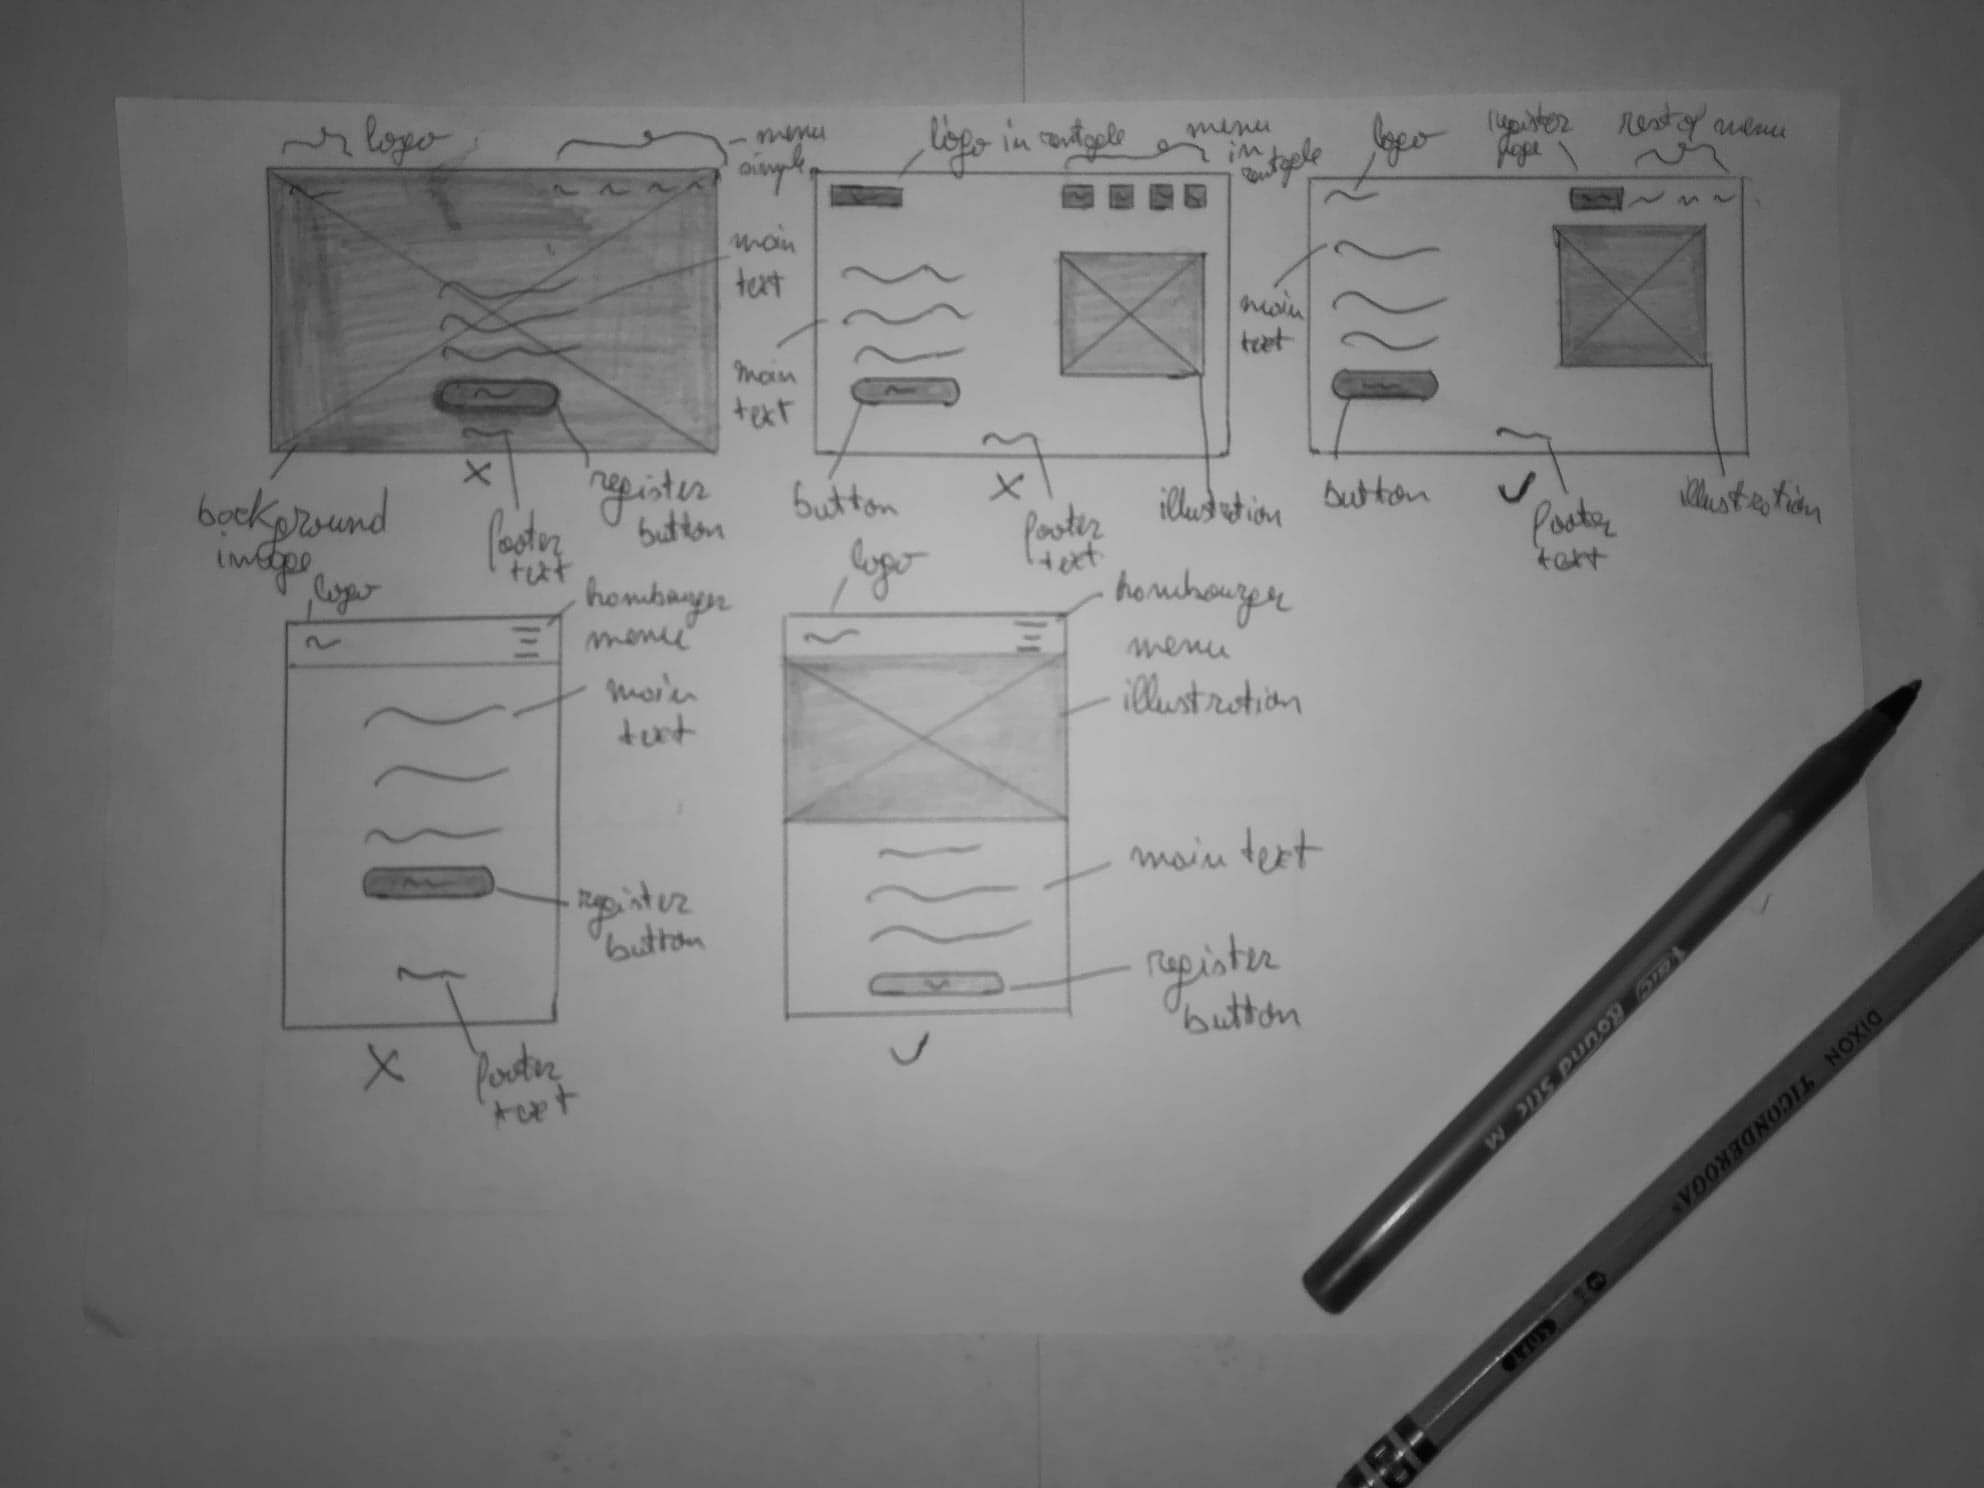 logo
menu
simple
main
text
background
image
footer
text
register
button
logo in
menu
in
main
text
button
footer
text
illustration
logo
register
page
rest of menu
main
text
button
footer
text
illustration
logo
hambourger
menu
main
text
register
button
footer
text
logo
hambourger
menu
illustration
main text
register
button
Round Stic M
DIXON TICONDEROGA